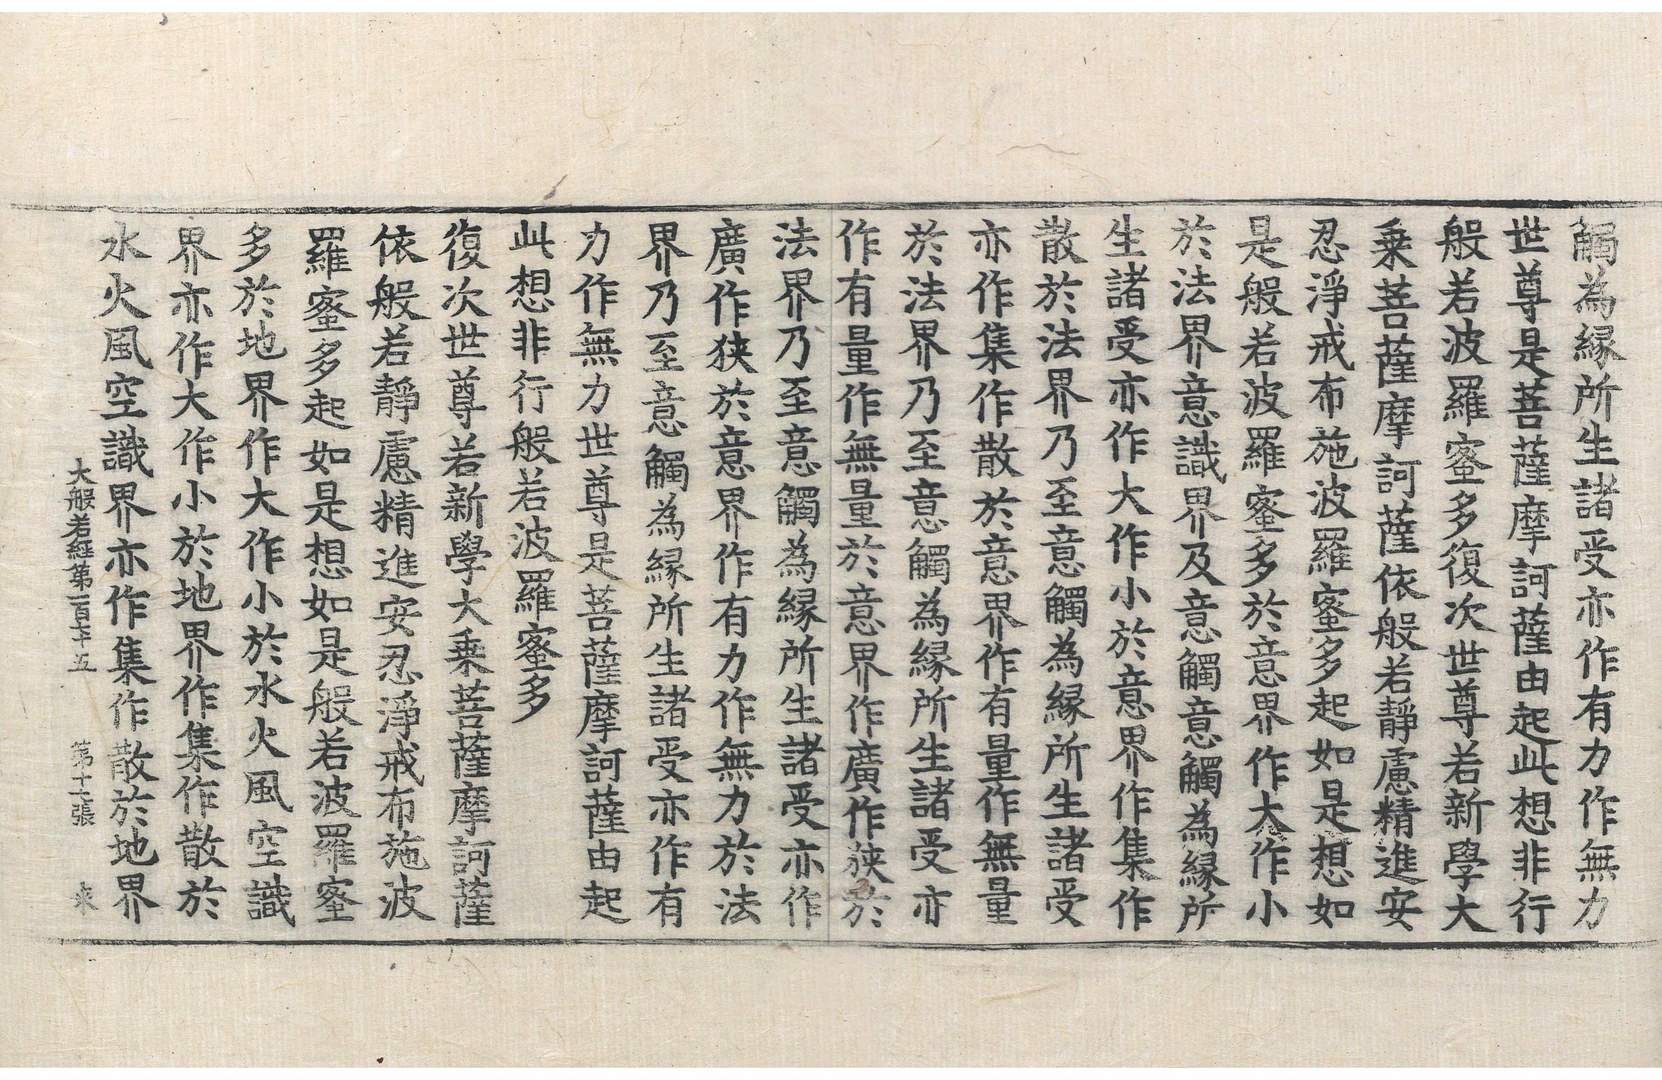 觸為緣所生諸受亦作有力作無力
世尊是菩薩摩訶薩由起此想非行
般若波羅蜜多復次世尊若新學大
乗菩薩摩訶薩依般若靜慮精進安
忍淨戒布施波羅蜜多起如是想如
是般若波羅蜜多於意界作大作小
於法界意識界及意觸意觸為緣所
生諸受亦作大作小於意界作集作
散於法界乃至意觸為緣所生諸受
亦作集作散於意界作有量作無量
於法界乃至意觸為緣所生諸受亦
作有量作無量於意界作廣作狹於
法界乃至意觸為緣所生諸受亦作
廣作狹於意界作有力作無力於法
界乃至意觸為緣所生諸受亦作有
力作無力世尊是菩薩摩訶薩由起
此想非行般若波羅蜜多
復次世尊若新學大乗菩薩摩訶薩
依般若靜慮精進安忍淨戒布施波
羅蜜多起如是想如是般若波羅蜜
多於地界作大作小於水火風空識
界亦作大作小於地界作集作散於
水火風空識界亦作集作散於地界
大般若經第一百六十五 第十一張 来